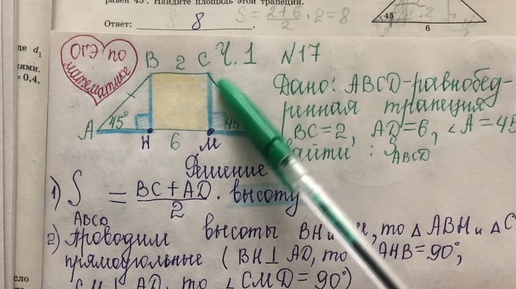 равен 45°. Найдите площадь этой трапеции.
Ответ: 8
S = 2+6/2 · 2 = 8
45°
6
де d₁
= 0,4.
ОГЭ по математике
B 2 C Ч. 1 N17
A 45° H 6 M 45°
Дано: ABCD-равнобед-
ренная трапеция
BC=2, AD=6, ∠A=45
S ABCD
Решение
1) S ABCD = BC+AD/2 · высоту
2) Проводим высоты BH и , то △ABH и △C
прямоугольные (BH⊥AD, то AHB=90°,
CM⊥AD, то ∠CMD=90°)
сло